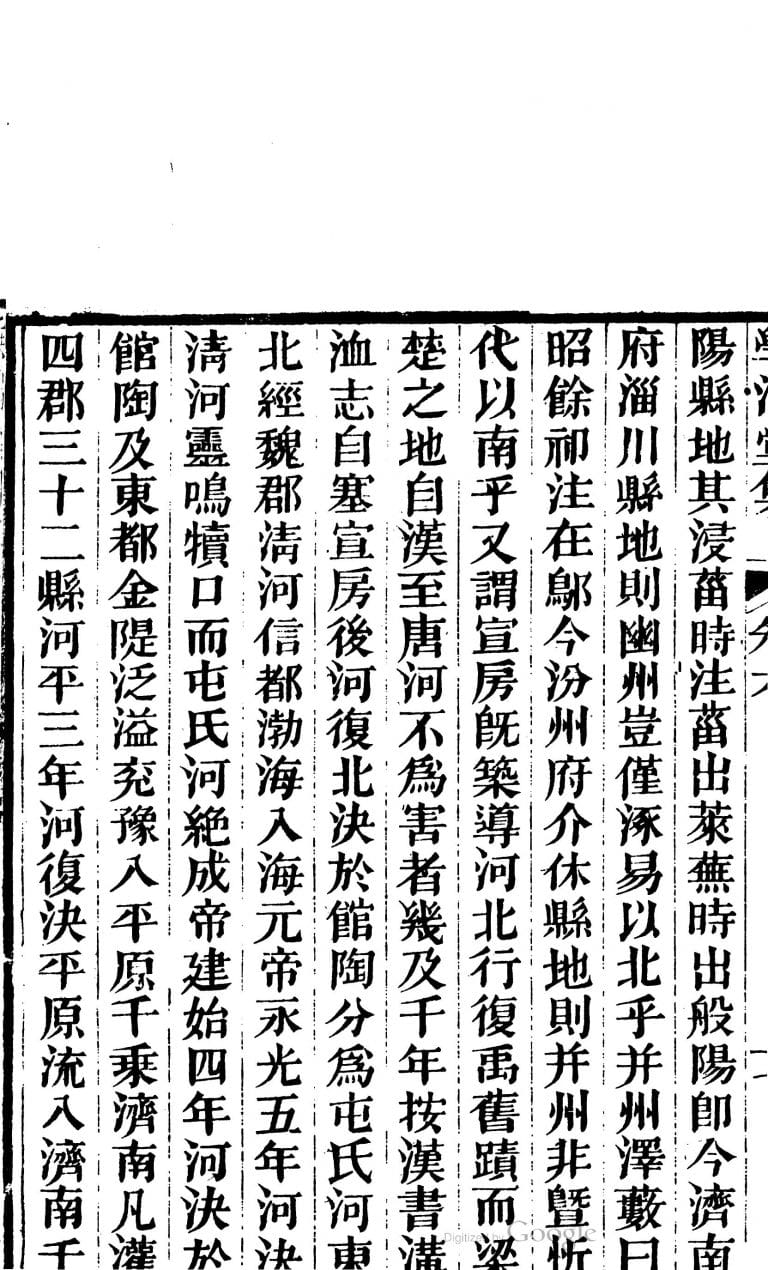 學海堂集
陽縣地其浸菑時注菑出萊蕪時出般陽卽今濟南
府淄川縣地則幽州豈僅涿易以北乎并州澤藪曰
昭餘祁注在鄔今汾州府介休縣地則并州非曁忻
代以南乎又謂宣房旣築導河北行復禹舊蹟而梁
楚之地自漢至唐河不爲害者幾及千年按漢書溝
洫志自塞宣房後河復北決於館陶分爲屯氏河東
北經魏郡淸河信都渤海入海元帝永光五年河決
淸河靈鳴犢口而屯氏河絶成帝建始四年河決於
館陶及東都金隄泛溢兖豫入平原千乗濟南凡灌
四郡三十二縣河平三年河復決平原流入濟南千
Digitized by Google